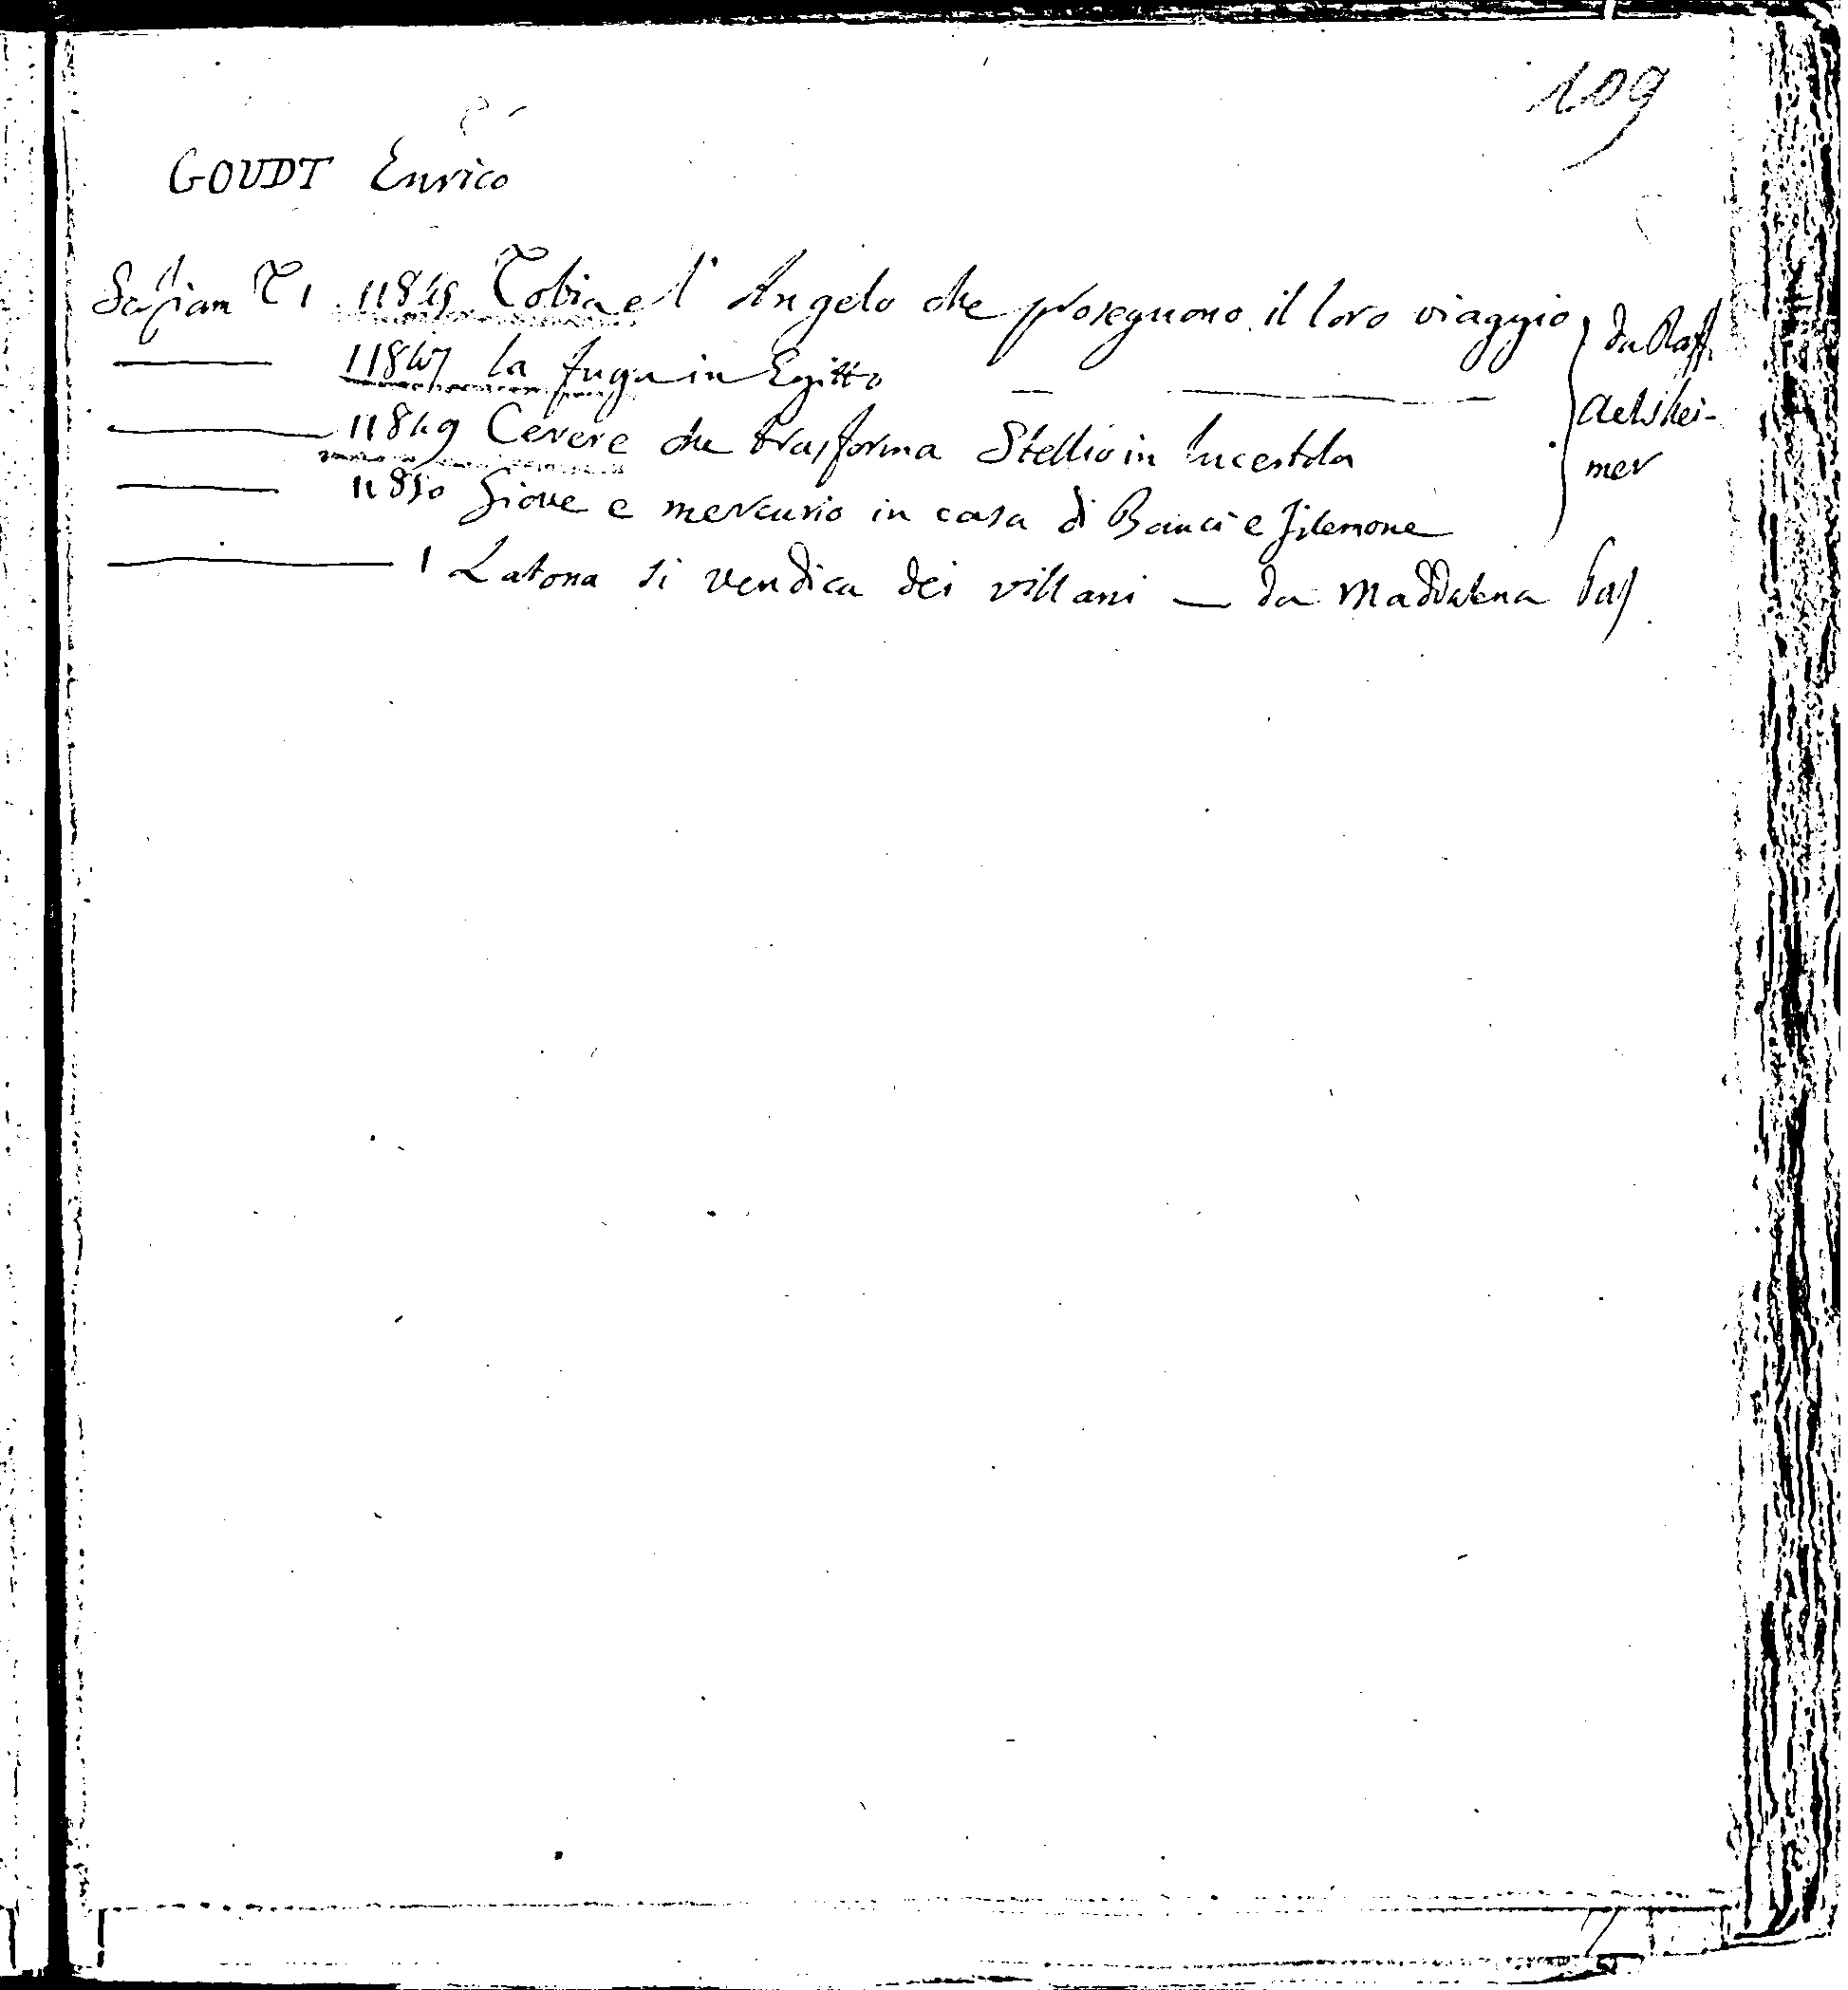 109
GOUDT Enrico
T 1 11845 Tobia e l'Angelo che proseguono il loro viaggio } da Raff.
11847 la fuga in Egitto — Aelshei-
11849 Cerere che trasforma Stellio in lucertola mer
11850 Giove e mercurio in casa di Bauci e Filemone
1 Latona si vendica dei villani — da Maddalena Pas